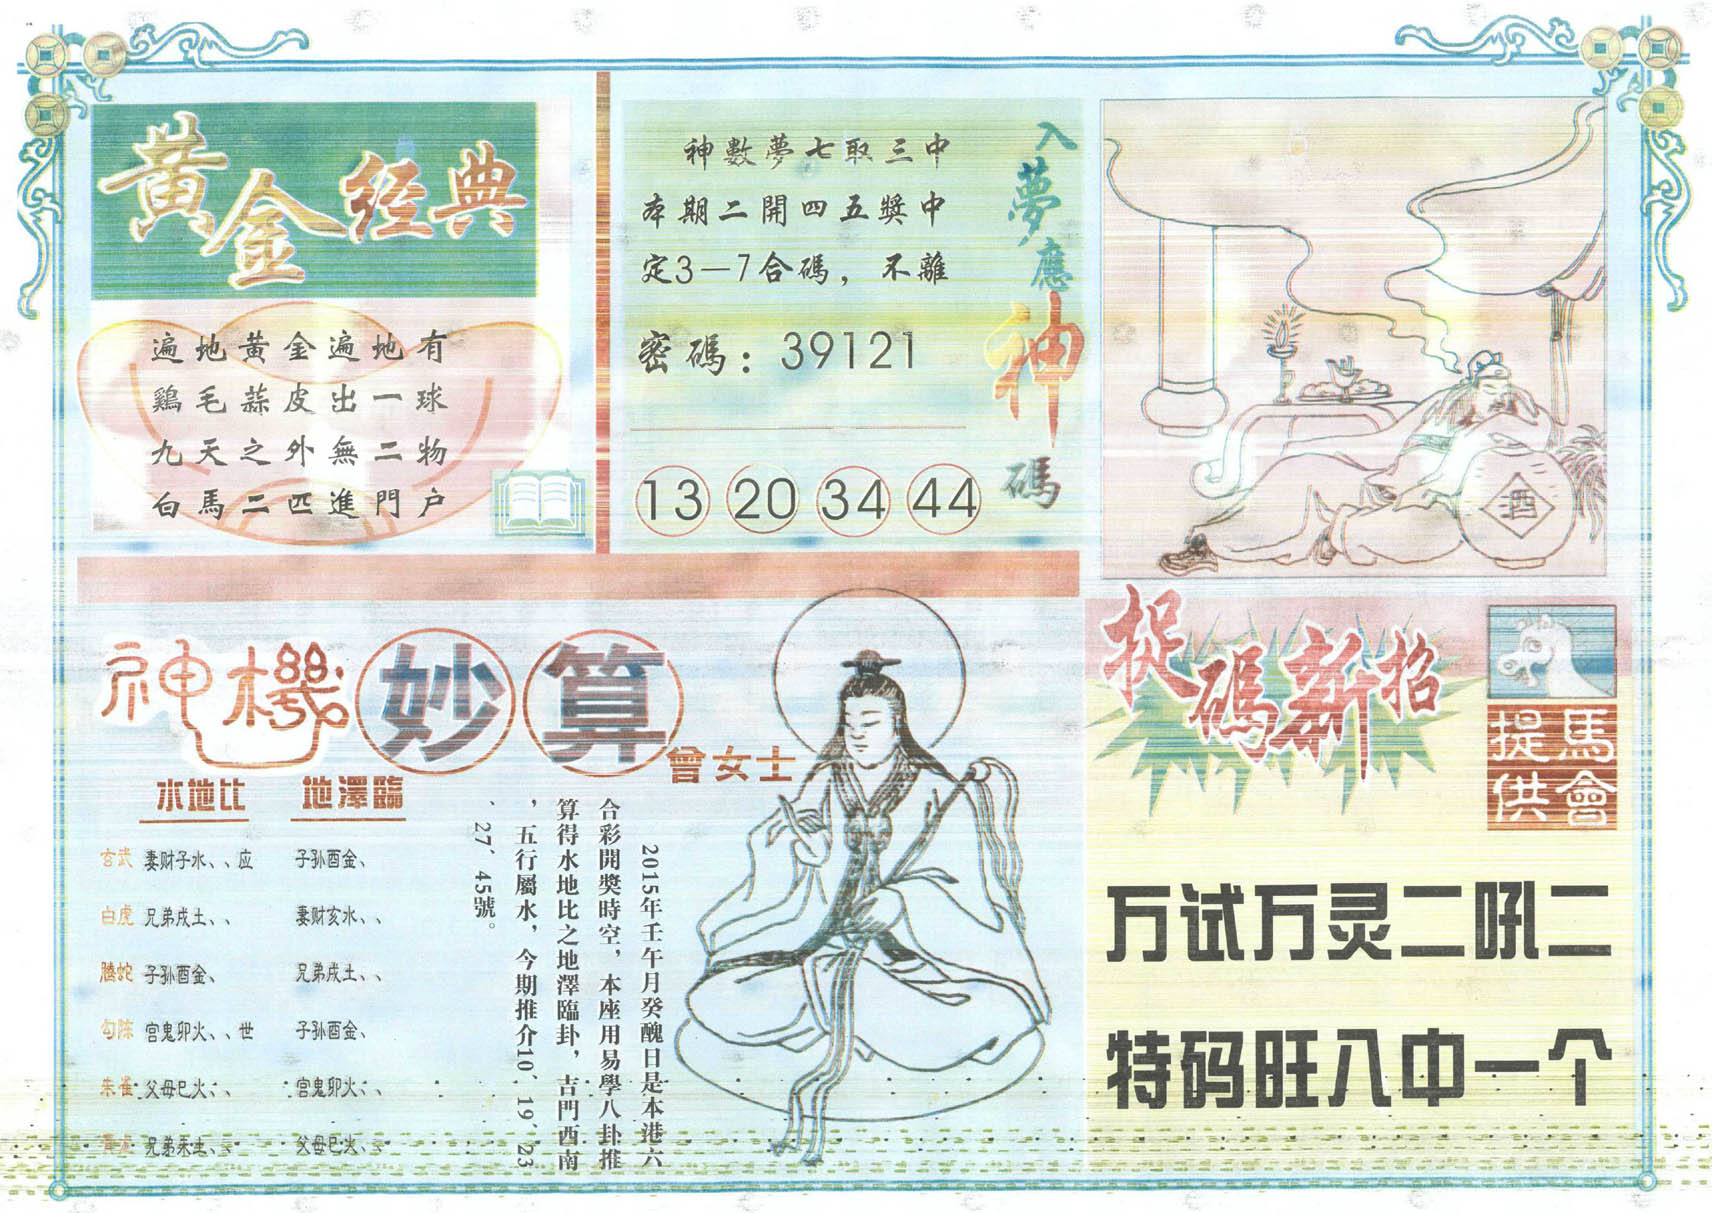 黄金经典
遍地黄金遍地有
鷄毛蒜皮出一球
九天之外無二物
白馬二匹進門户
入夢應神碼
神數夢七取三中
本期二開四五獎中
定3—7合碼，不離
密碼：39121
13 20 34 44
酒
神機妙算
曾女士
水地比 地澤臨
玄武 妻财子水、、应 子孙酉金、
白虎 兄弟戍土、、 妻财亥水、、
騰蛇 子孙酉金、 兄弟戍土、、
勾陈 官鬼卯火、、世 子孙酉金、
朱雀 父母巳火、、 官鬼卯火、、
兄弟未土、、 父母巳火、
2015年壬午月癸醜日是本港六
合彩開獎時空，本座用易學八卦推
算得水地比之地澤臨卦，吉門西南
，五行屬水，今期推介10、19、23
、27、45號。
捉碼新招
馬會提供
万试万灵二吼二
特码旺入中一个